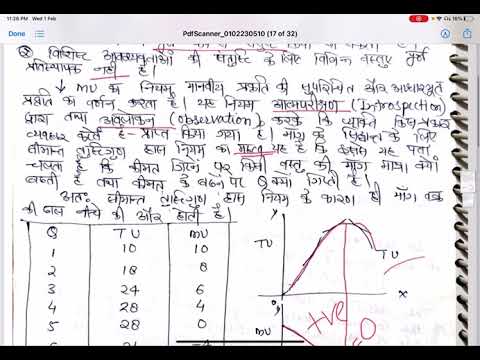 11:26 PM Wed 1 Feb
16%
PdfScanner_0102230510 (17 of 32)
② विशिष्ट आवश्यकताओं की संतुष्टि के लिए विभिन्न वस्तुएँ पूर्ण
प्रतिस्थापक नहीं हैं।
↓ MU का नियम मानवीय प्रकृति की सुपरिचित और आधारभूत
प्रकृति का वर्णन करता है। यह नियम आत्मपरीक्षण (Introspection)
द्वारा तथा अवलोकन (observation) करके कि व्यक्ति किस प्रकार
व्यवहार करते हैं - प्राप्त किया गया है। मांग के सिद्धान्त के लिए
सीमान्त तुष्टिगुण ह्रास नियम का महत्व यह है कि इससे यह पता
चलता है कि कीमत गिरने पर किसी वस्तु की मांग मात्रा क्यों
बढ़ती है तथा कीमत के बढ़ने पर Q क्यों गिरती है।
अतः सीमान्त तुष्टिगुण ह्रास नियम के कारण ही माँग वक्र
की ढाल नीचे की ओर होती है।
Q TU MU
1 10 10
2 18 8
3 24 6
4 28 4
5 28 0
Y
TU
TU
X
0
MU
+ve
0